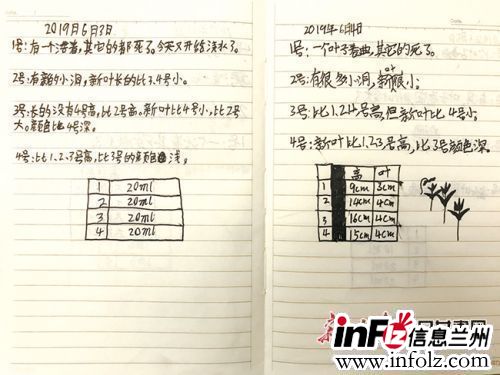 2019年6月3日
1号:有一个活着,其它的都死了。今天又开始浇水了。
2号:有新的小洞,新叶长的比3.4号小。
3号:长的没有4号高,比2号高。新叶比4号小,比2号
大。颜色比4号深。
4号:比1.2.3号高,比3号的颜色浅。
1 20ml
2 20ml
3 20ml
4 20ml
2019年6月4日
1号:一个叶子卷曲,其它的死了。
2号:有很多小洞,新叶很小。
3号:比1.2.4号高,但新叶比4号小。
4号:新叶比1.2.3号高,比3号颜色深。
高 叶
1 9cm 3cm
2 14cm 4cm
3 16cm 4cm
4 15cm 4cm
inFLZ 信息兰州
www.infolz.com